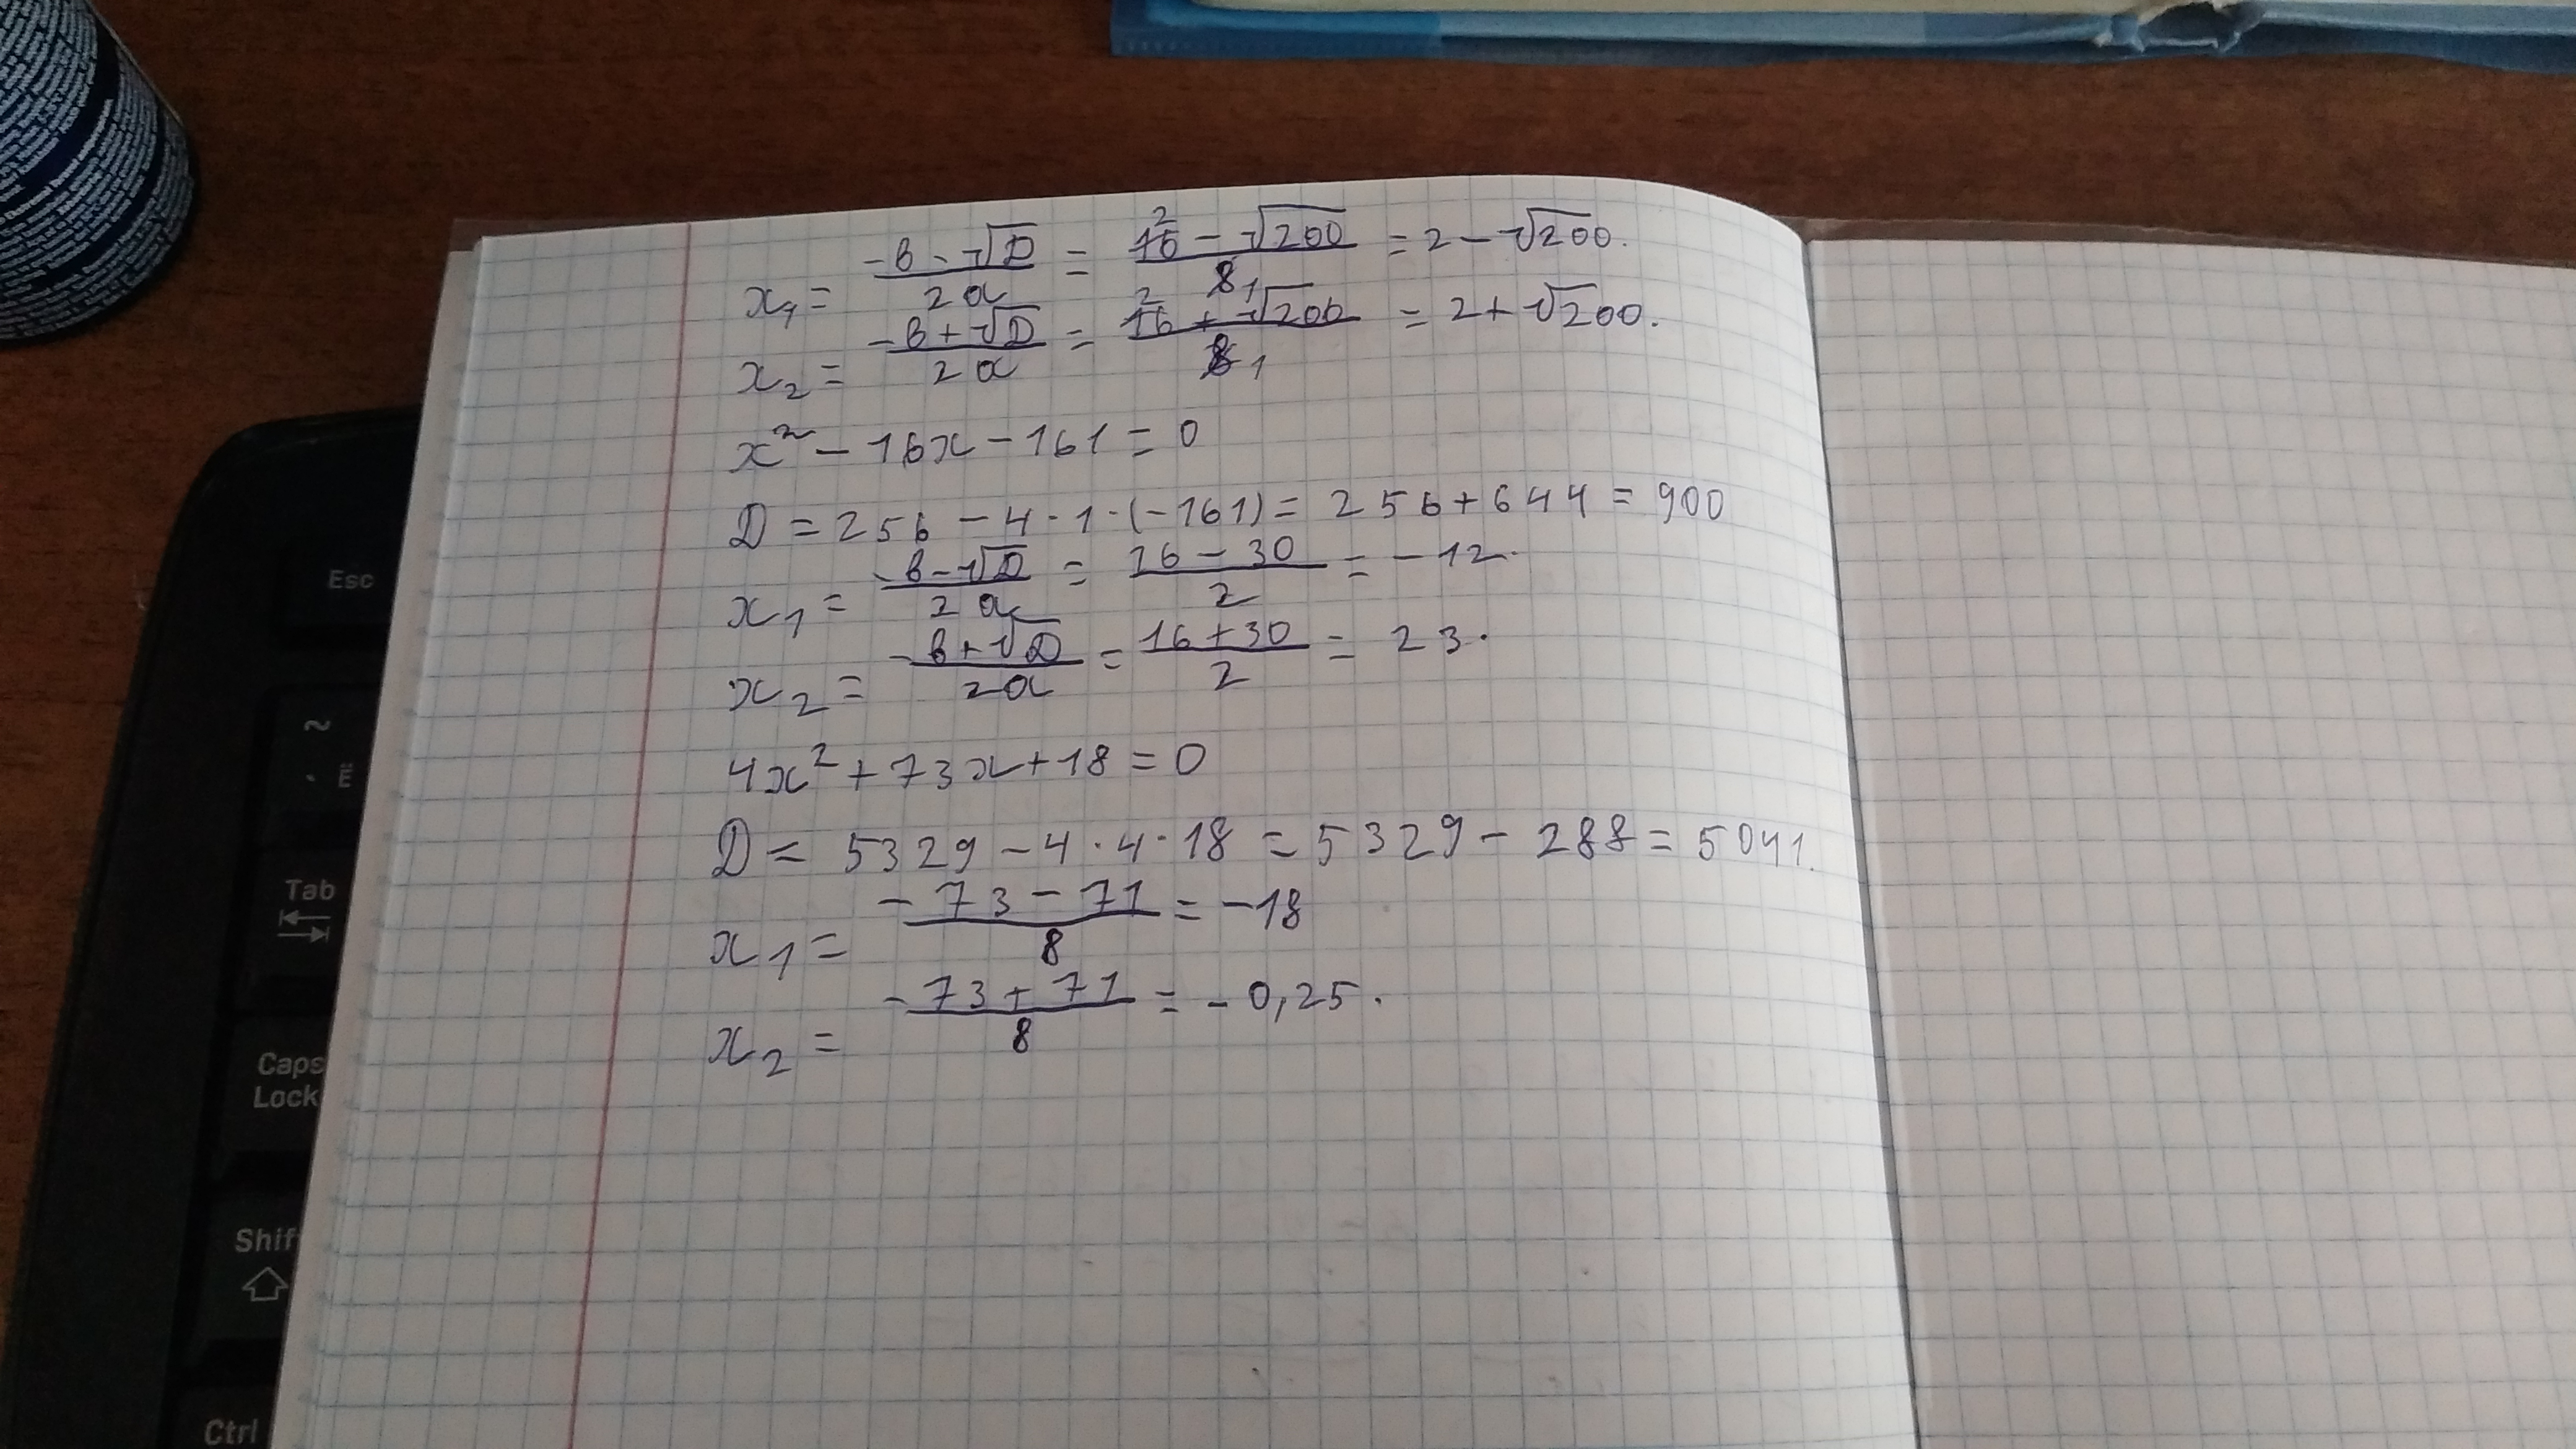 x₁ = (-в - √D)/(2a) = (16 - √200)/8 = 2 - √200.
x₂ = (-в + √D)/(2a) = (16 + √200)/8 = 2 + √200.
x² - 16x - 161 = 0
D = 256 - 4 · 1 · (-161) = 256 + 644 = 900
x₁ = (-в - √D)/(2a) = (16 - 30)/2 = -12.
x₂ = (-в + √D)/(2a) = (16 + 30)/2 = 23.
4x² + 73x + 18 = 0
D = 5329 - 4 · 4 · 18 = 5329 - 288 = 5041.
x₁ = (-73 - 71)/8 = -18
x₂ = (-73 + 71)/8 = -0,25.
Esc
~
Ё
Tab
Caps
Lock
Shif
Ctrl